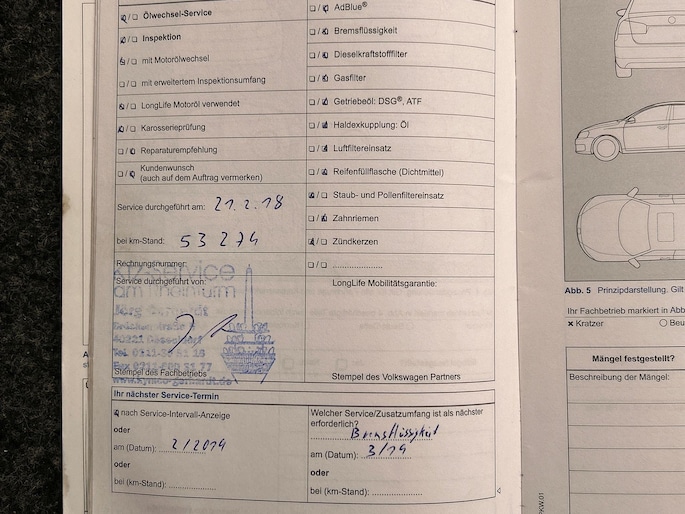 ☒/☐ Ölwechsel-Service
☒/☐ Inspektion
☒/☐ mit Motorölwechsel
☐/☐ mit erweitertem Inspektionsumfang
☒/☐ LongLife Motoröl verwendet
☒/☐ Karosserieprüfung
☐/☒ Reparaturempfehlung
☐/☒ Kundenwunsch
(auch auf dem Auftrag vermerken)
Service durchgeführt am: 21.2.18
bei km-Stand: 53 274
Rechnungsnummer:
Service durchgeführt von:
Kfz-Service
am Rheinturm
Jörg
40221 Düsseldorf
Stempel des Fachbetriebs
☐/☒ AdBlue®
☐/☒ Bremsflüssigkeit
☐/☒ Dieselkraftstofffilter
☐/☒ Gasfilter
☐/☒ Getriebeöl: DSG®, ATF
☐/☒ Haldexkupplung: Öl
☐/☒ Luftfiltereinsatz
☐/☒ Reifenfüllflasche (Dichtmittel)
☒/☐ Staub- und Pollenfiltereinsatz
☐/☒ Zahnriemen
☒/☐ Zündkerzen
☐/☐ ....................
LongLife Mobilitätsgarantie:
Stempel des Volkswagen Partners
Ihr nächster Service-Termin
☒ nach Service-Intervall-Anzeige
oder
am (Datum): 2/2019
oder
bei (km-Stand): ....................
Welcher Service/Zusatzumfang ist als nächster
erforderlich?
Bremsflüssigkeit
am (Datum): 3/19
oder
bei (km-Stand): ....................
Abb. 5 Prinzipdarstellung. Gilt
Ihr Fachbetrieb markiert in Abb
× Kratzer ○ Beu
Mängel festgestellt?
Beschreibung der Mängel:
PKW.01